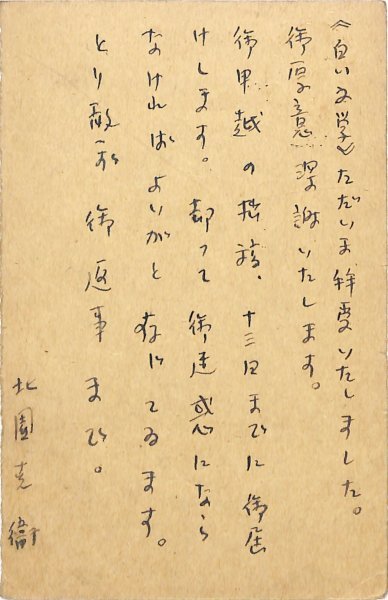 《白い文学》ただいま拝受いたしました。
御厚意深謝いたします。
御申越の拙稿、十三日までに御届
けします。却って御迷惑になら
なければよいがと存じてゐます。
とり敢へず御返事まで。
北園克衛